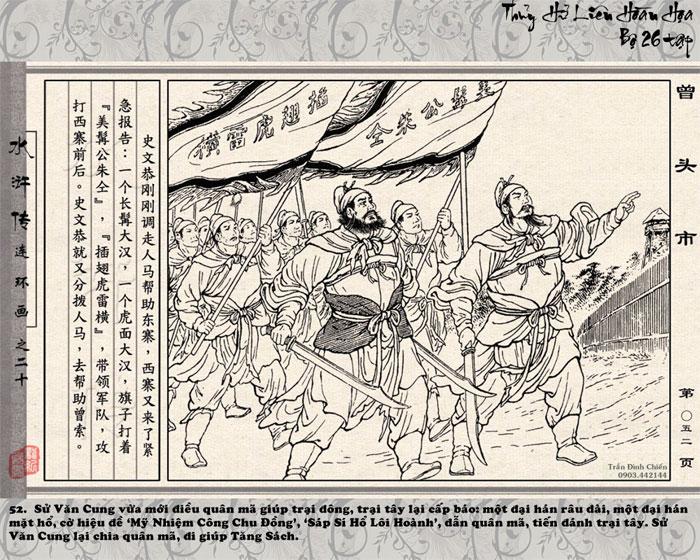 Thủy Hử Liên Hoàn Họa
Bộ 26 tập
曾头市
第〇五二页
水浒传连环画之二十
史文恭刚刚调走人马帮助东寨，西寨又来了紧
急报告：一个长髯大汉，一个虎面大汉，旗子打着
『美髯公朱仝』，『插翅虎雷横』，带领军队，攻
打西寨前后。史文恭就又分拨人马，去帮助曾索。
插翅虎雷横
美髯公朱仝
Trần Đình Chiến
0903.442144
52. Sử Văn Cung vừa mới điều quân mã giúp trại đông, trại tây lại cấp báo: một đại hán râu dài, một đại hán
mặt hổ, cờ hiệu đề ‘Mỹ Nhiệm Công Chu Đồng’, ‘Sáp Sí Hổ Lôi Hoành’, dẫn quân mã, tiến đánh trại tây. Sử
Văn Cung lại chia quân mã, đi giúp Tăng Sách.